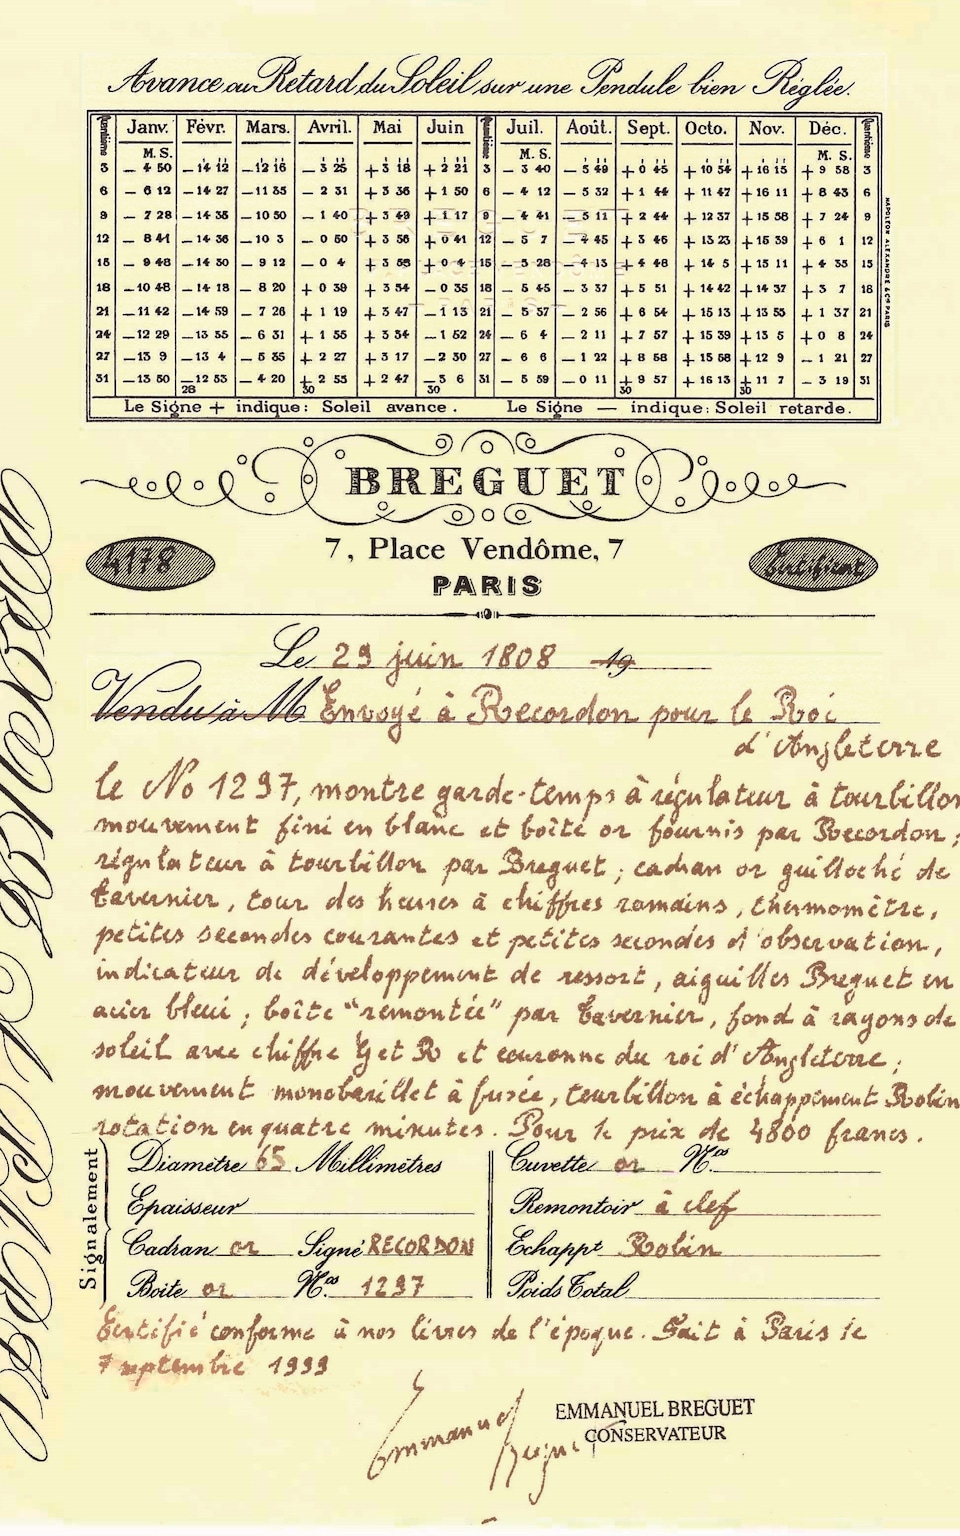 Avance ou Retard du Soleil sur une Pendule bien Réglée.
Quantième Janv. Févr. Mars. Avril. Mai Juin Quantième Juil. Août. Sept. Octo. Nov. Déc. Quantième
M. S. M. S. M. S.
3 — 4 50 —14 12 —12 16 — 3 25 + 3 18 + 2 21 3 — 3 40 — 5 49 + 0 45 +10 54 +16 15 + 9 58 3
6 — 6 12 —14 27 —11 35 — 2 31 + 3 36 + 1 50 6 — 4 12 — 5 32 + 1 44 +11 47 +16 11 + 8 43 6
9 — 7 28 —14 35 —10 50 — 1 40 + 3 49 + 1 17 9 — 4 41 — 5 11 + 2 44 +12 37 +15 58 + 7 24 9
12 — 8 41 —14 36 —10 3 — 0 50 + 3 56 + 0 41 12 — 5 7 — 4 45 + 3 46 +13 23 +15 39 + 6 1 12
15 — 9 48 —14 30 — 9 12 — 0 4 + 3 58 + 0 4 15 — 5 28 — 4 13 + 4 48 +14 5 +15 11 + 4 35 15
18 —10 48 —14 18 — 8 20 + 0 39 + 3 54 — 0 35 18 — 5 45 — 3 37 + 5 51 +14 42 +14 37 + 3 7 18
21 —11 42 —14 59 — 7 26 + 1 19 + 3 47 — 1 13 21 — 5 57 — 2 56 + 6 54 +15 13 +13 55 + 1 37 21
24 —12 29 —13 35 — 6 31 + 1 55 + 3 34 — 1 52 24 — 6 4 — 2 11 + 7 57 +15 39 +13 5 + 0 8 24
27 —13 9 —13 4 — 5 35 + 2 27 + 3 17 — 2 30 27 — 6 6 — 1 22 + 8 58 +15 58 +12 9 — 1 21 27
31 —13 50 —12 53 — 4 20 + 2 55 + 2 47 — 3 6 31 — 5 59 — 0 11 + 9 57 +16 13 +11 7 — 3 19 31
28 30 30 30 30
Le Signe + indique: Soleil avance. Le Signe — indique: Soleil retarde.
NAPOLÉON ALEXANDRE & Cie PARIS
BREGUET
7, Place Vendôme, 7
PARIS
4178
Certificat
Le 29 juin 1808 19
Vendu à M Envoyé à Recordon pour le Roi
d'Angleterre
le No 1297, montre garde-temps à régulateur à tourbillon
mouvement fini en blanc et boîte or fournis par Recordon;
régulateur à tourbillon par Breguet; cadran or guilloché de
Tavernier, tour des heures à chiffres romains, thermomètre,
petites secondes courantes et petites secondes d'observation,
indicateur de développement de ressort, aiguilles Breguet en
acier bleui; boîte "remontée" par Tavernier, fond à rayons de
soleil avec chiffre G et R et couronne du roi d'Angleterre;
mouvement monobarillet à fusée, tourbillon à échappement Robin
rotation en quatre minutes. Pour le prix de 4800 francs.
Signalement
Diamètre 65 Millimètres Cuvette or Nos
Epaisseur Remontoir à clef
Cadran or Signé RECORDON Echappt Robin
Boite or Nos 1297 Poids Total
Certifié conforme à nos livres de l'époque. Fait à Paris le
7 septembre 1999
Emmanuel Breguet
EMMANUEL BREGUET
CONSERVATEUR